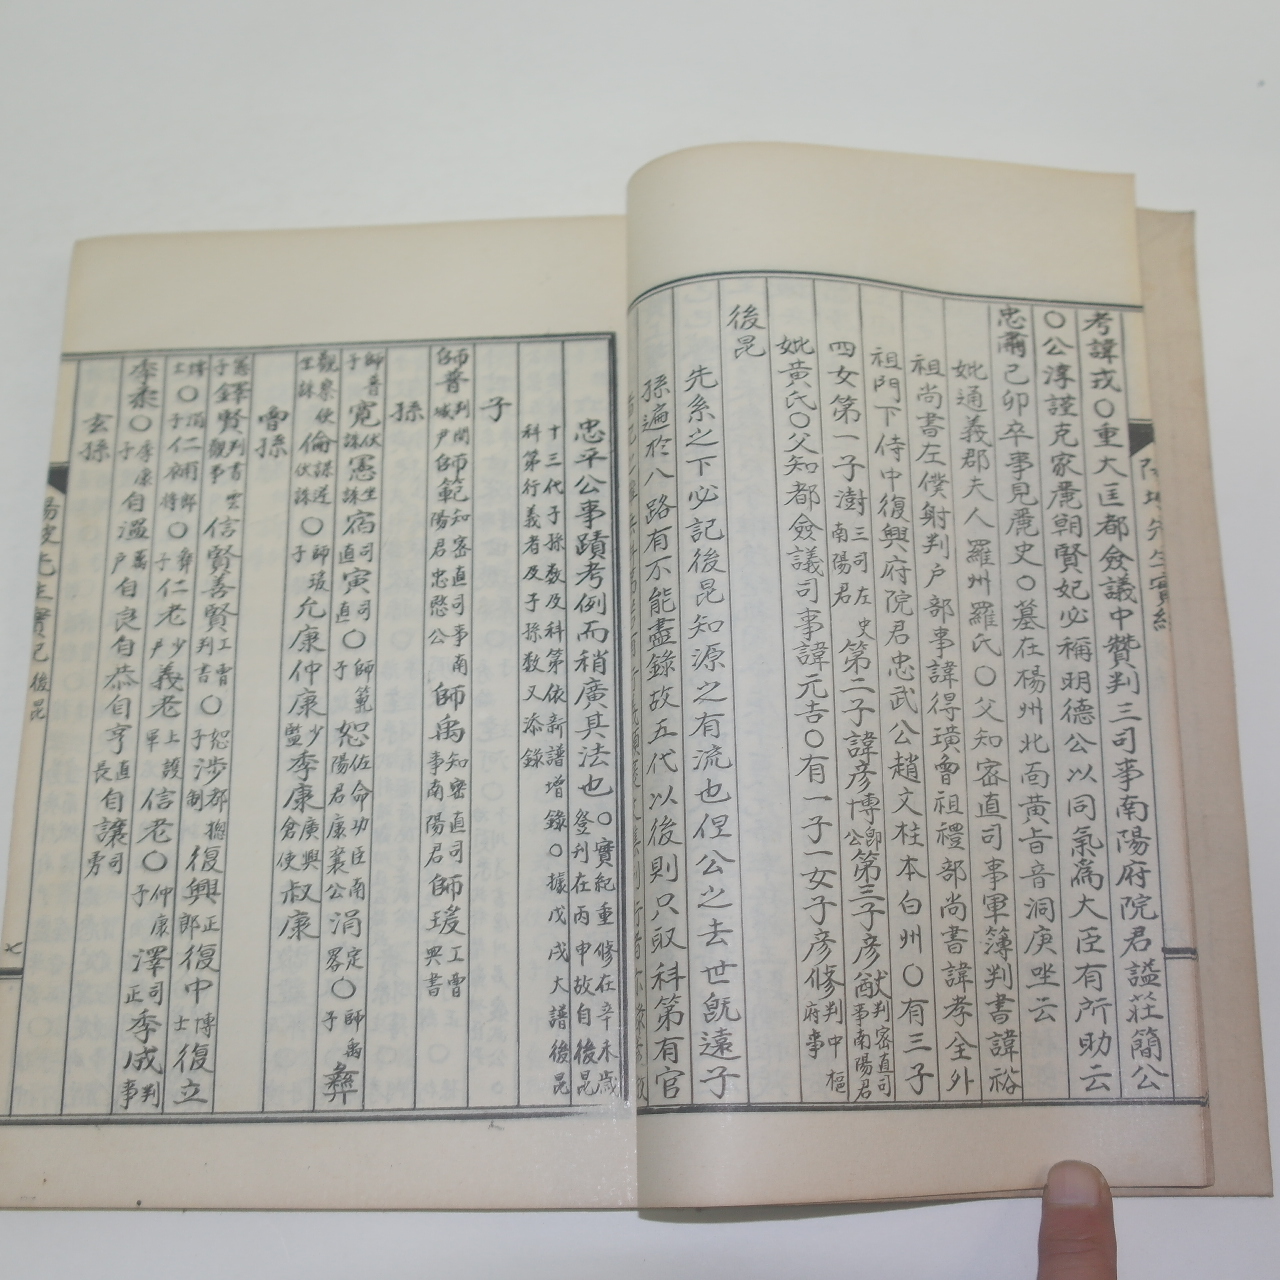 考諱戎○重大匡都僉議中贊判三司事南陽府院君謚莊簡公
○公淳謹克家麗朝賢妃必稱明德公以同氣爲大臣有所助云
忠肅己卯卒事見麗史○墓在楊州北面黃旨音洞庚坐云
妣通義郡夫人羅州羅氏○父知密直司事軍簿判書諱裕
祖尚書左僕射判户部事諱得璜曾祖禮部尚書諱孝全外
祖門下侍中復興府院君忠武公趙文柱本白州○有三子
四女第一子澍三司左史南陽君第二子諱彦博第三子彦猷判密直司事南陽君
妣黃氏○父知都僉議司事諱元吉○有一子一女子彦修判中樞府事
後昆
先系之下必記後昆知源之有流也但公之去世旣遠子
孫遍於八路有不能盡錄故五代以後則只取科第有官
忠平公事蹟考例而稍廣其法也○寶紀重修在辛未歲登刊在丙申故自後昆
十三代子孫数及科第依新譜增錄○據戊戌大譜後昆
科第行義者及子孫数又添錄
子
師普判閤 師範知密直司事南陽君忠愍公 師禹知密直司事南陽君 師瑗工曹典書
孫
師普子寬 憲 宿司直 寅司直○師範子恕佐命功臣南陽君康襄公 涓定畧○師禹子彝
觀察使 倫 ○師瑗子允康 仲康少監 季康廣興倉使 叔康
曾孫
子鐸 賢判書 信賢 善賢工曹判書○恕子涉都摠制 復興正郎 復中博士 復立
○子仁 ○彝子仁老少尹 義老上護軍 信老○仲康子澤司正 季成判事
季泰○季康子自温 自良 自恭 自亨直長 自讓司勇
玄孫
陽坡先生實紀 後昆 七